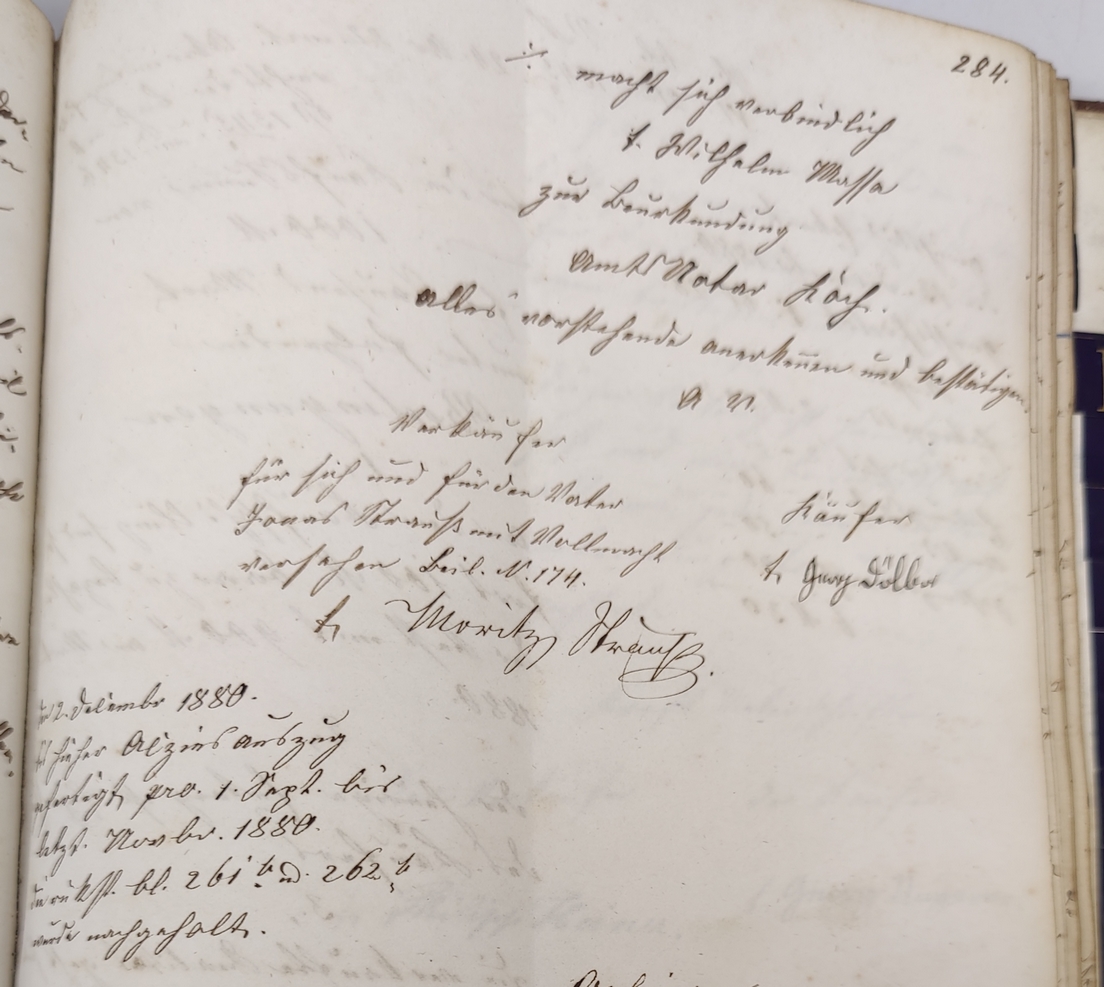 284.
÷ macht sich verbindlich
t. Wilhelm Massa
zur Beurkundung
Amts Notar Koch.
alles vorstehende anerkennen und bestätigen.
A V.
Verkäufer
für sich und für den Vater
Jonas Strauß mit Vollmacht
versehen Beil. N. 174.
t, Moritz Strauß.
Käufer
t, Georg
2. Dezembr 1880.
hieher Accisauszug
gefertigt pro. 1. Sept. bis
letzt. Novbr. 1880.
die rükst. bl. 261 b. u. 262. b.
wurde nachgeholt.